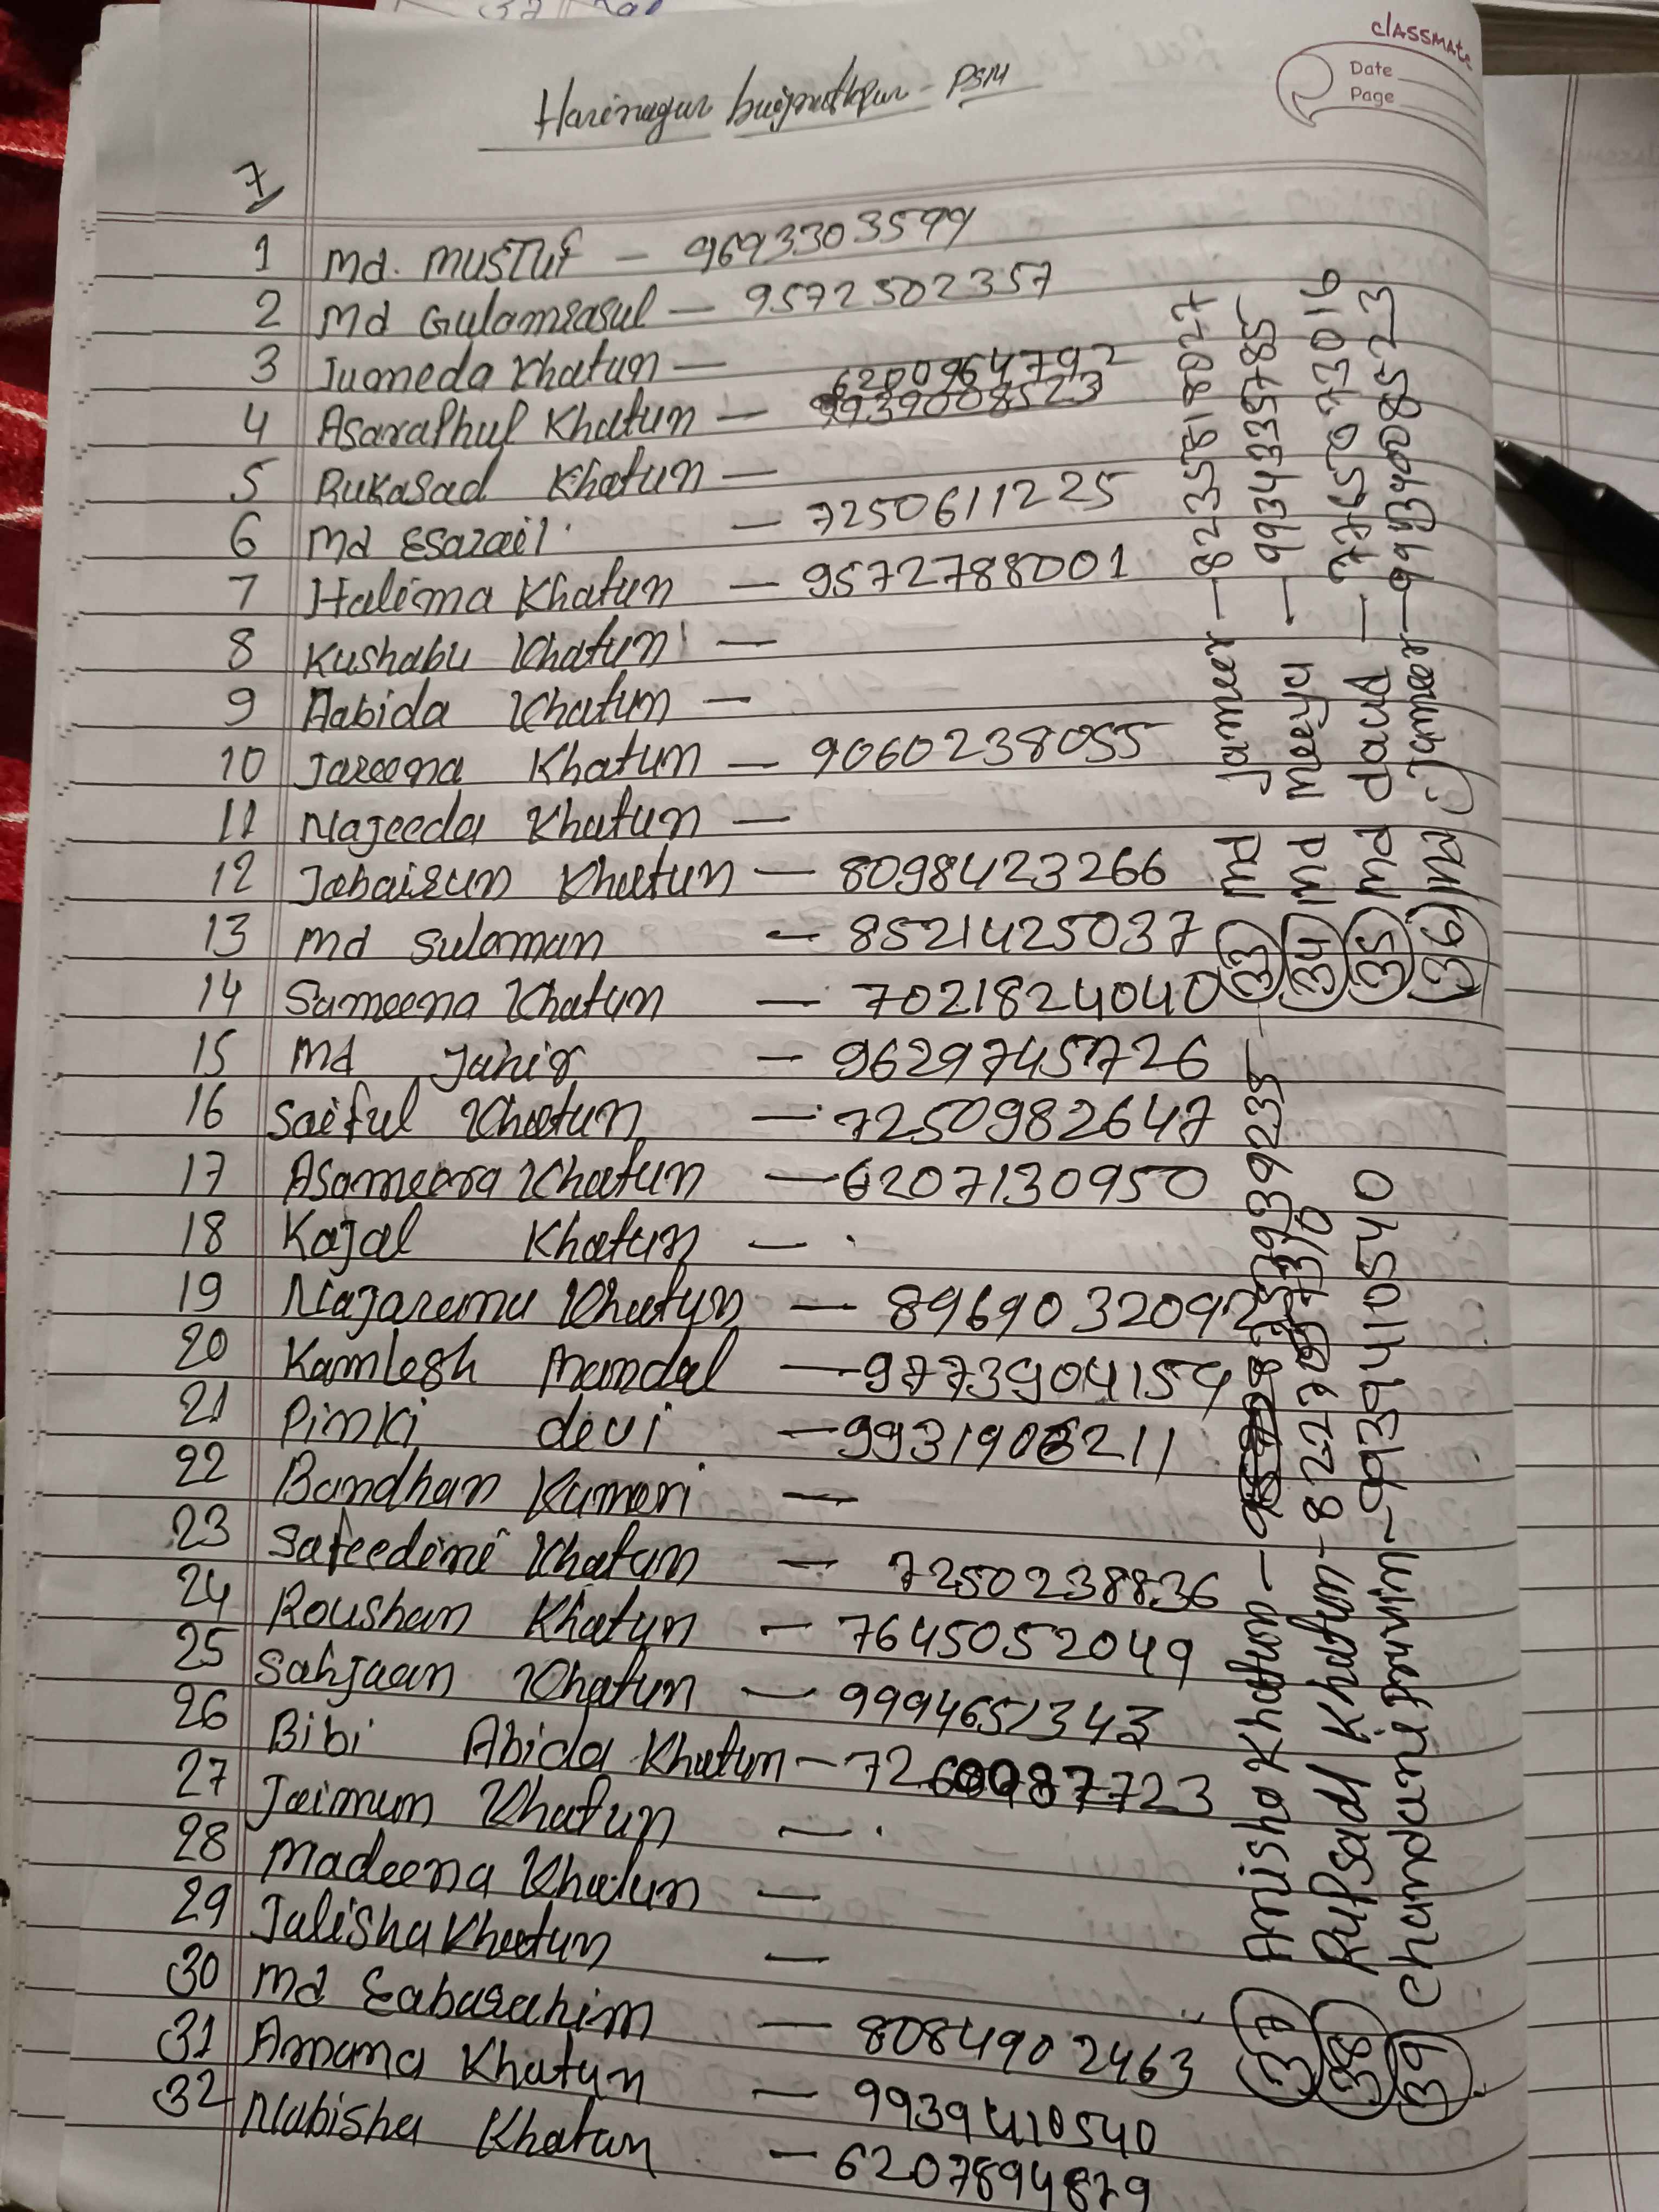 classmate
Date
Page
Harinagur baijnathpur - PSM
7
1 Md. MUSTUF - 9693303599
2 Md Gulamrasul - 9572502357
3 Juomeda Khatun - 6200964792
4 Asaraphul Khatun - 9939008523
5 Rukasad Khatun -
6 Md Esarail - 7250611225
7 Halima Khatun - 9572788001
8 Kushabu Khatun -
9 Aabida Khatun -
10 Jareena Khatun - 9060238055
11 Najeeda Khatun -
12 Jabairun Khatun - 8098423266
13 Md Sulaman - 8521425037
14 Sameena Khatun - 7021824040
15 Md Jahir - 9629745726
16 Saiful Khatun - 7250982647
17 Asameera Khatun - 6207130950
18 Kajal Khatun -
19 Najarana Khatun - 8969032092
20 Kamlesh Mandal - 9773904159
21 Pinki devi - 9931906211
22 Bandhan Kumari -
23 Safeedini Khatun - 7250238836
24 Roushan Khatun - 7645052049
25 Sahjaan Khatun - 9994651343
26 Bibi Abida Khatun - 7260087723
27 Jaimun Khatun -
28 Madeena Khatun -
29 Jalisha Khatun -
30 Md Eabarahim - 8084902463
31 Amana Khatun - 9939410540
32 Nabisha Khatun - 6207894879
33 Md Jameer - 8235818027
34 Md Meeya - 9934335785
35 Md daud - 7765073016
36 Md Jameer - 9939008523
37 Anisha Khatun -
38 Rupsadl Khatun -
39 Chandani Pruvin - 9939410540